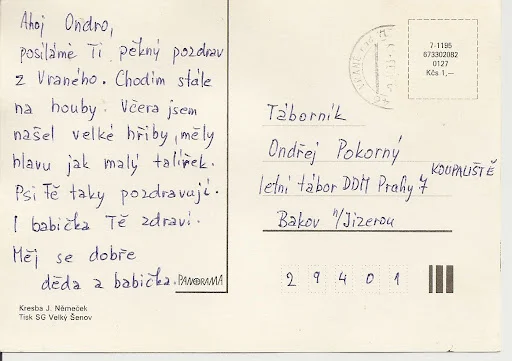 Ahoj Ondro,
posíláme Ti pěkný pozdrav
z Vraného. Chodím stále
na houby. Včera jsem
našel velké hřiby, měly
hlavu jak malý talířek.
Psi Tě taky pozdravují.
I babička Tě zdraví.
Měj se dobře
děda a babička.
PANORAMA
Kresba J. Němeček
Tisk SG Velký Šenov
7-1195
673302082
0127
Kčs 1,—
Táborník
Ondřej Pokorný
KOUPALIŠTĚ
letní tábor DDM Prahy 7
Bakov n/Jizerou
29401